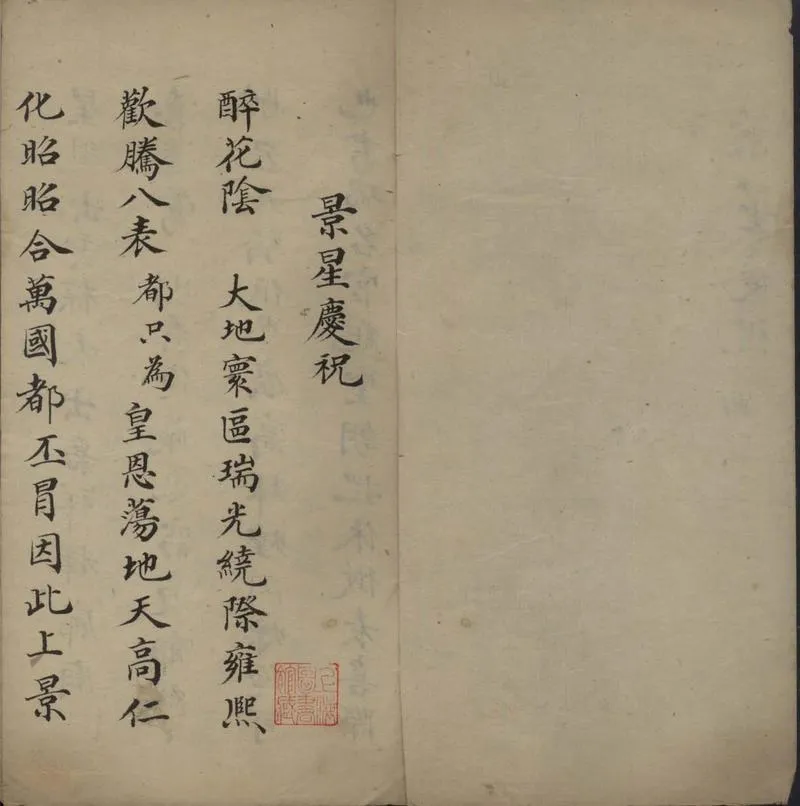 景星慶祝
醉花陰 大地寰區瑞光繞際雍熙
歡騰八表都只為皇恩蕩地天高仁
化昭昭合萬國都丕冒因此上景